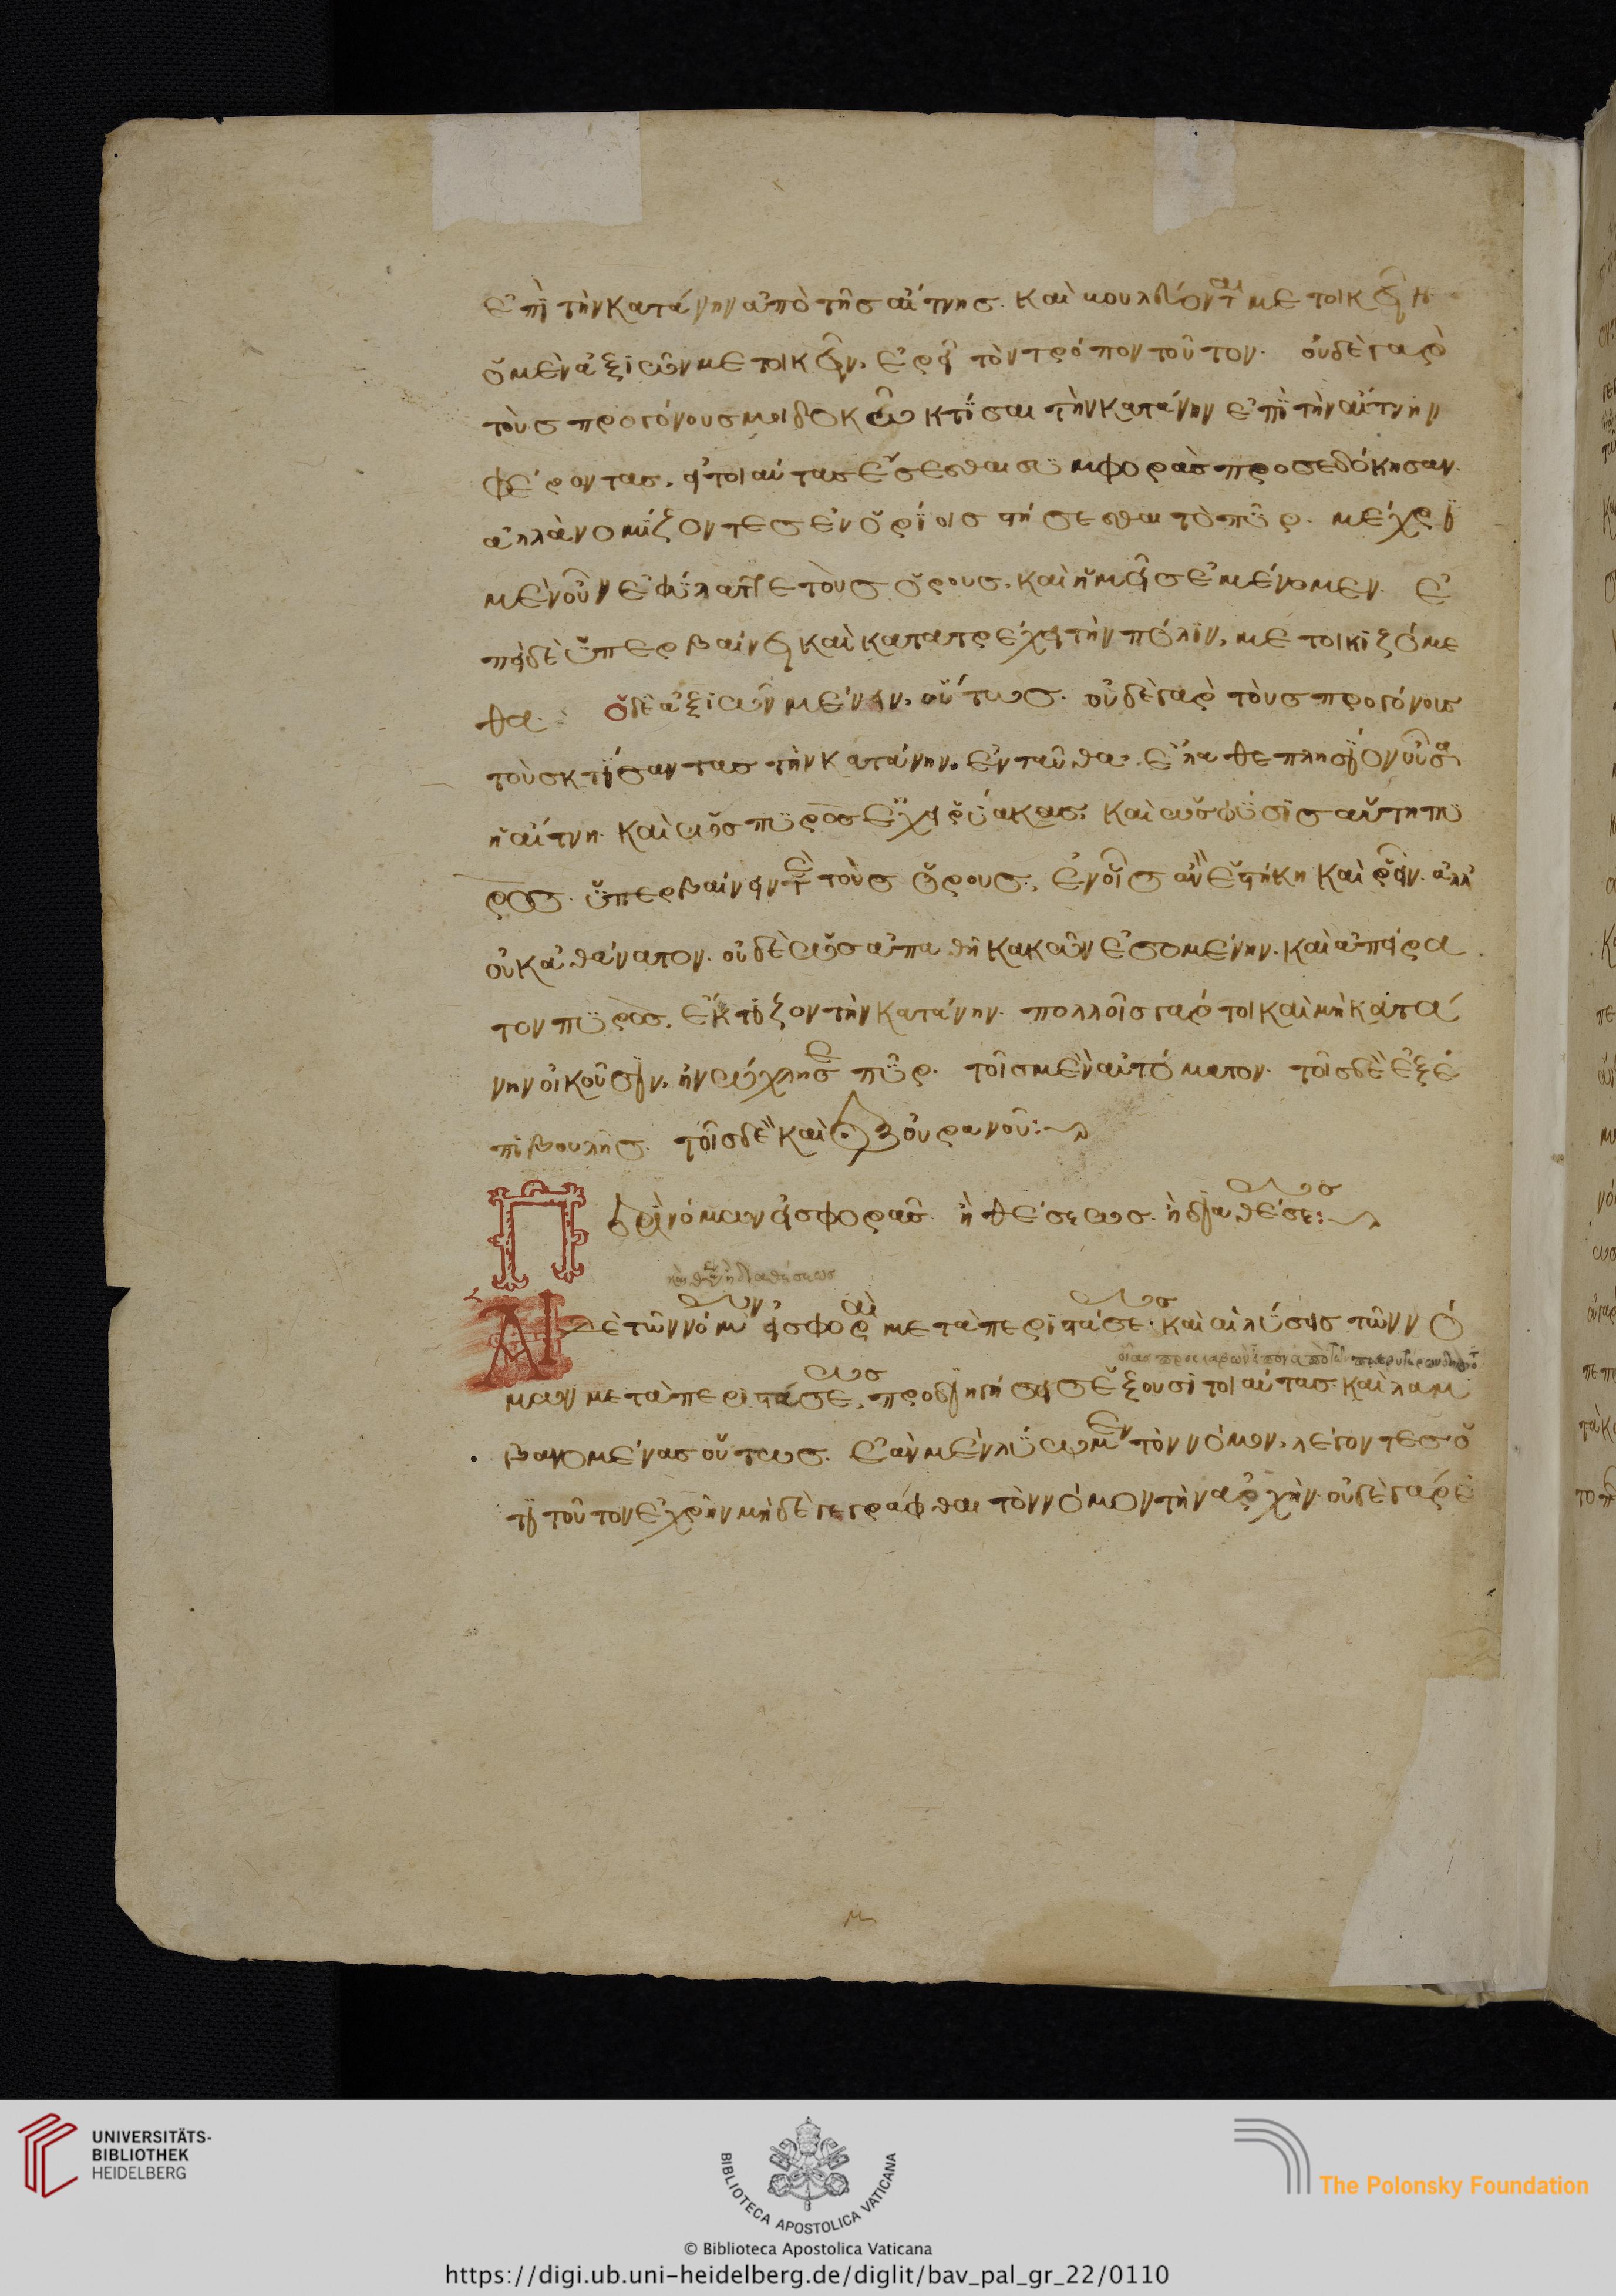 ἐπὶ τὴν κατάνην ἀπὸ τῆς αἴτνης. καὶ βουλεύονται μετοικεῖν
ὁ μὲν ἀξιῶν μετοικεῖν, ἐρεῖ τὸν τρόπον τοῦτον. οὐδὲ γὰρ
τοὺς προγόνους μοι δοκῶ κτίσαι τὴν κατάνην ἐπὶ τὴν αἴτνην
φέροντας, εἰ τοιαύτας ἔσεσθαι συμφορὰς προσεδόκησαν.
ἀλλὰ νομίζοντες ἐν ὁρίοις στήσεσθαι τὸ πῦρ. μέχρι
μὲν οὖν ἐφύλαττε τοὺς ὅρους, καὶ ἡμεῖς ἐμένομεν. ἐ
πεὶ δὲ ὑπερβαίνει καὶ κατατρέχει τὴν πόλιν, μετοικιζόμε
θα. ὁ δὲ ἀξιῶν μένειν, οὕτως. οὐδὲ γὰρ τοὺς προγόνους
τοὺς κτίσαντας τὴν κατάνην, ἐνταῦθα ἔλαθε πλησίον οὖσα
ἡ αἴτνη. καὶ ὡς πυρὸς ἔχει ῥύακας. καὶ ὡς φύσις αὕτη πυ
ρὸς. ὑπερβαίνειν τε τοὺς ὅρους, ἐν οἷς ἂν ἑστήκῃ καὶ ῥεῖν. ἀλλ'
οὐκ ἀθάνατον. οὐδὲ ὡς ἀπαθῆ κακῶν ἐσομένην. καὶ ἀπείρα
τον πυρὸς, ἔκτιζον τὴν κατάνην. πολλοῖς γάρ τοι καὶ μὴ κατά
νην οἰκοῦσιν, ἠνώχλησε πῦρ. τοῖς μὲν αὐτόματον. τοῖς δὲ ἐξ ἐ
πιβουλῆς. τοῖς δὲ καὶ ἐξ οὐρανοῦ:
Περὶ νόμων εἰσφορᾶς. ἢ θέσεως. ἢ διαθέσεως:
Αἱ δὲ τῶν νόμων εἰσφοραὶ μετὰ περιστάσεως. καὶ αἱ λύσεις τῶν νό
μων μετὰ περιστάσεως, προδιηγήσεις ἕξουσι τοιαύτας. καὶ λαμ
βανομένας οὕτως. ἐὰν μὲν λύωμεν τὸν νόμον, λέγοντες ὅ
τι τοῦτον ἐχρῆν μηδὲ γεγράφθαι τὸν νόμον τὴν ἀρχὴν. οὐδὲ γὰρ ἐ
UNIVERSITÄTS-
BIBLIOTHEK
HEIDELBERG
BIBLIOTECA APOSTOLICA VATICANA
The Polonsky Foundation
© Biblioteca Apostolica Vaticana
https://digi.ub.uni-heidelberg.de/diglit/bav_pal_gr_22/0110